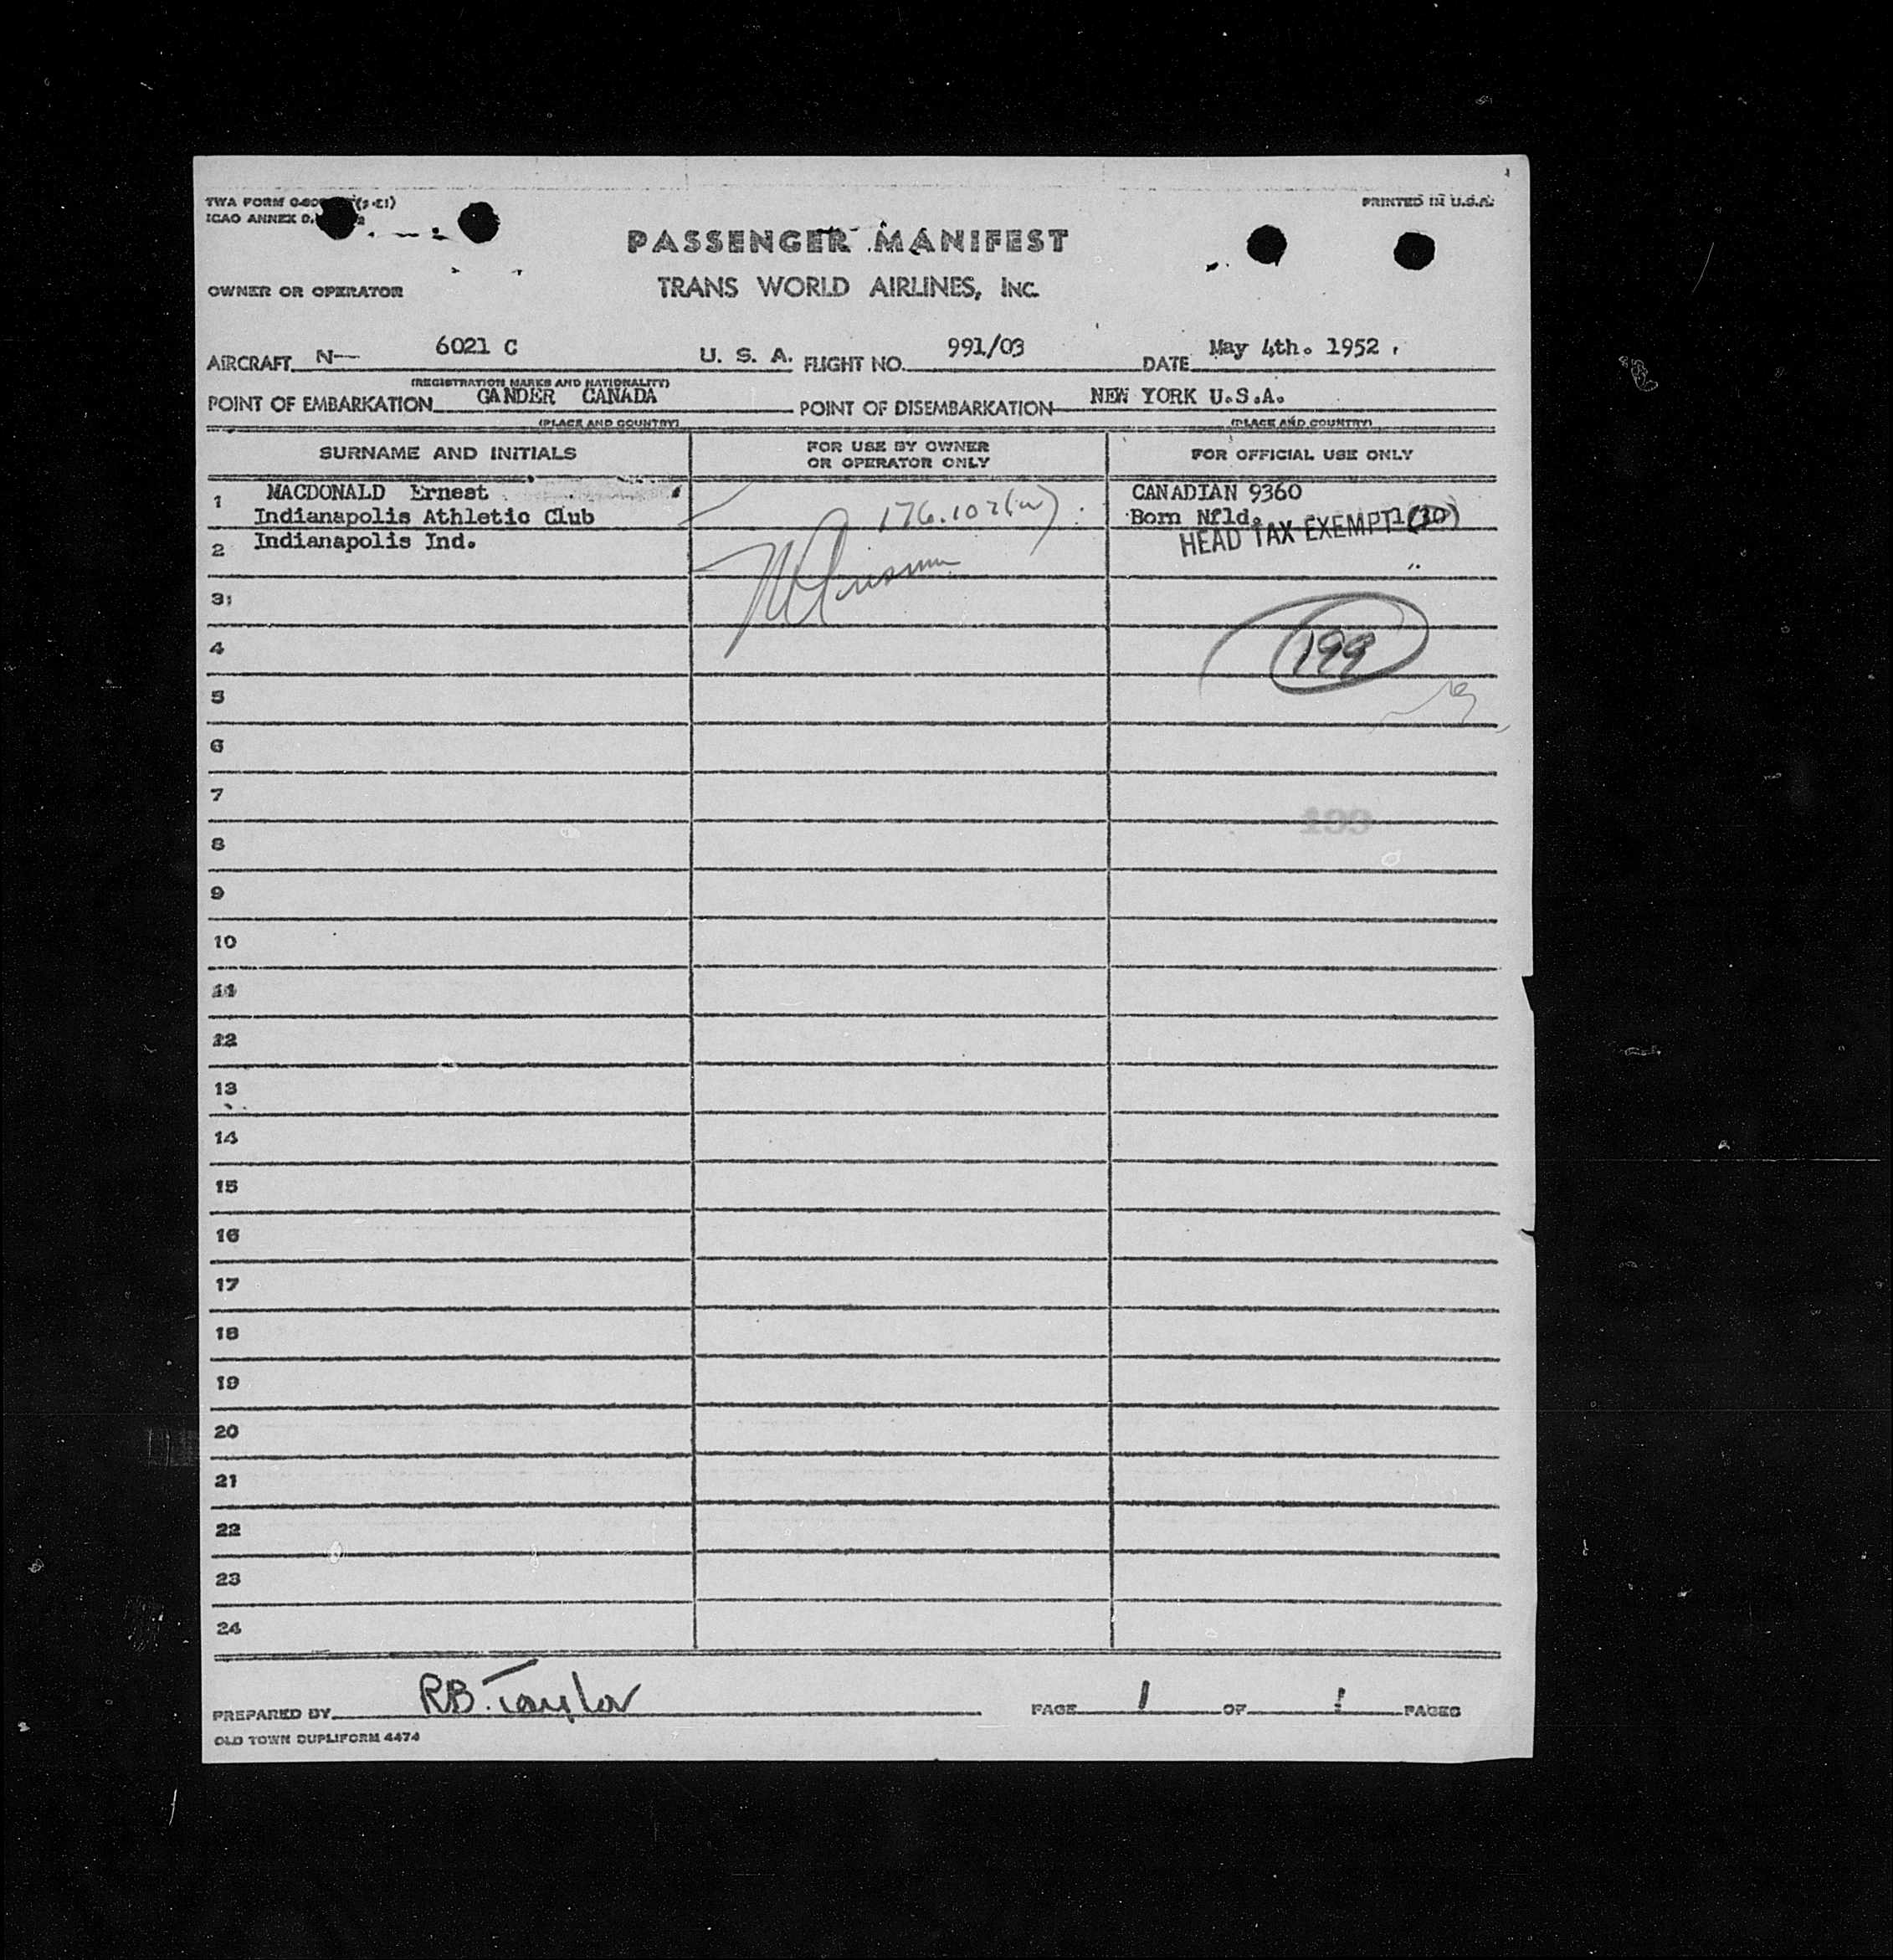 PRINTED IN U.S.A.
ICAO ANNEX
PASSENGER MANIFEST
TRANS WORLD AIRLINES, INC.
OWNER OR OPERATOR
AIRCRAFT N— 6021 C U. S. A. FLIGHT NO. 991/03 DATE May 4th. 1952
(REGISTRATION MARKS AND NATIONALITY)
POINT OF EMBARKATION GANDER CANADA POINT OF DISEMBARKATION NEW YORK U.S.A.
(PLACE AND COUNTRY) (PLACE AND COUNTRY)
SURNAME AND INITIALS FOR USE BY OWNER OR OPERATOR ONLY FOR OFFICIAL USE ONLY
1 MACDONALD Ernest CANADIAN 9360
Indianapolis Athletic Club 176.107(w) Born Nfld.
HEAD TAX EXEMPT 1(10)
2 Indianapolis Ind.
3
4 199
5
6
7
199
8
9
10
11
12
13
14
15
16
17
18
19
20
21
22
23
24
PREPARED BY RB. Taylor PAGE 1 OF 1 PAGES
OLD TOWN DUPLIFORM 4474